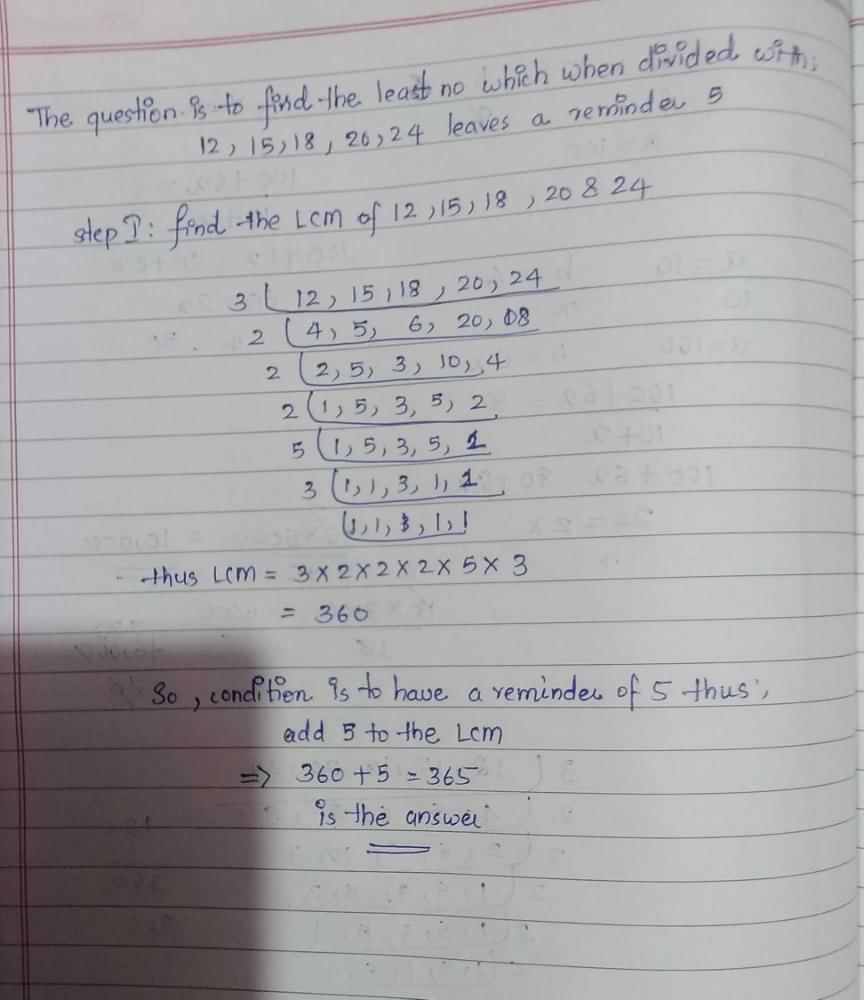 The question is to find the least no which when divided with;
12, 15, 18, 20, 24 leaves a reminder 5
step I: find the LCM of 12, 15, 18, 20 & 24
3 12, 15, 18, 20, 24
2 4, 5, 6, 20, 08
2 2, 5, 3, 10, 4
2 1, 5, 3, 5, 2
5 1, 5, 3, 5, 1
3 1, 1, 3, 1, 1
1, 1, 1, 1, 1
thus LCM = 3 X 2 X 2 X 2 X 5 X 3
= 360
So, condition is to have a reminder of 5 thus,
add 5 to the LCM
=> 360 + 5 = 365
is the answer